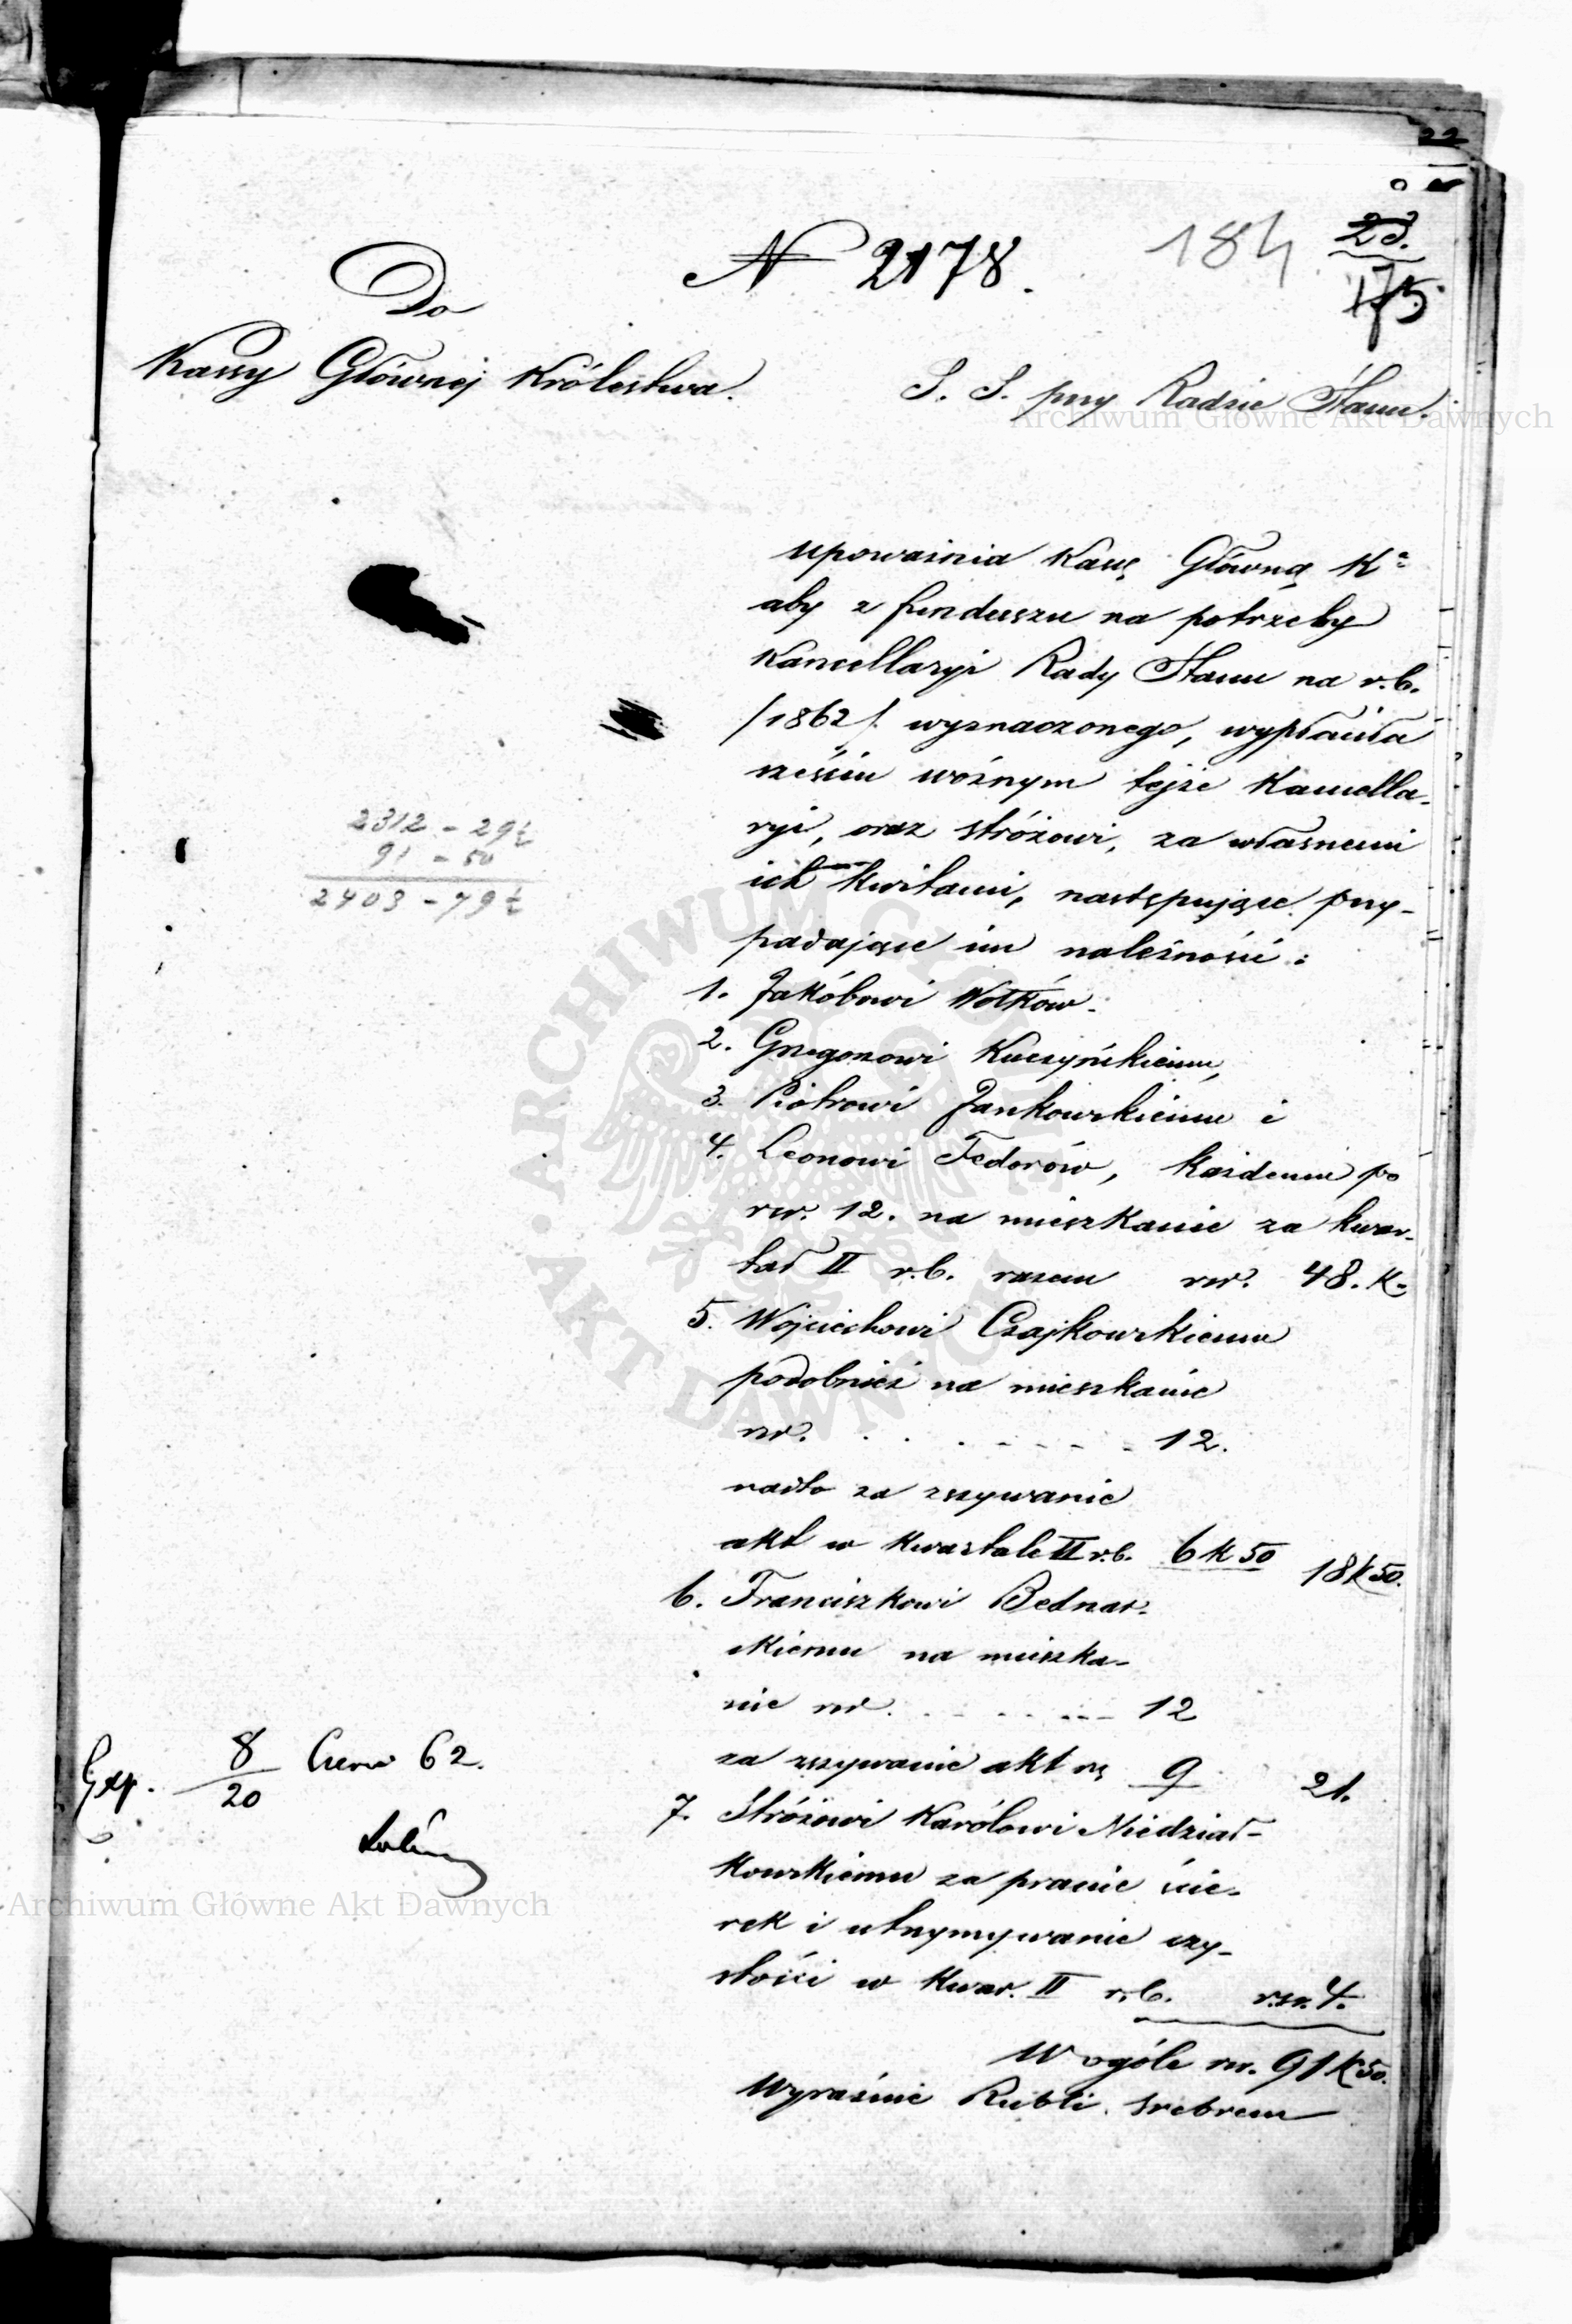 22
184
23.
175
N 2178.
Do
Kassy Głównej Królestwa.
S. S. przy Radzie Stanu.
upoważnia Kassę Główną K.
aby z funduszu na potrzeby
Kancellaryi Rady Stanu na r.b.
/1862/ wyznaczonego, wypłaciła
sześciu woźnym tejże Kancella-
ryi, oraz stróżowi, za własnemi
ich kwitami, następujące przy-
padające im należności:
2312 - 29½
91 - 50
2403 - 79½
1. Jakóbowi Wołków.
2. Grzegorzowi Kuczyńskiemu,
3. Piotrowi Jankowskiemu i
4. Leonowi Fedorów, każdemu po
rsr. 12. na mieszkanie za kwar-
tał II r.b. razem rsr. 48. K-
5. Wojciechowi Czajkowskiemu
podobnież na mieszkanie
rsr. . . . . - - - - 12.
nadto za zszywanie
akt w kwartale II r.b. 6 k 50 18 k 50.
6. Franciszkowi Bednar-
skiemu na mieszka-
nie rsr. . - - - - 12
za zszywanie akt rs 9 21.
7. Stróżowi Karólowi Niedział-
kowskiemu za pranie ście-
rek i utrzymywanie czy-
stości w kwar. II r.b. rsr. 4.
W ogóle rsr. 91 k 50.
Wyraźnie Rubli srebrem
Exp. 8/20 Czerw 62.
Archiwum Główne Akt Dawnych
ARCHIWUM GŁÓWNE
AKT DAWNYCH
Archiwum Główne Akt Dawnych